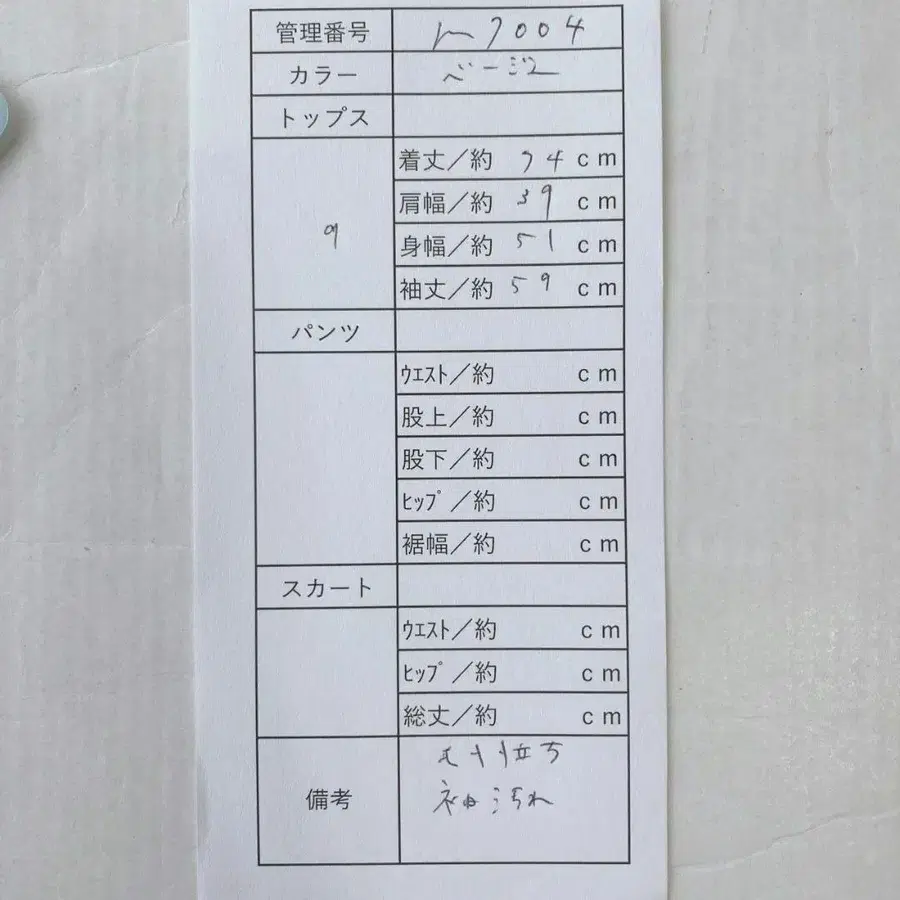 管理番号 m7004
カラー ベージュ
トップス
9
着丈／約 74 cm
肩幅／約 39 cm
身幅／約 51 cm
袖丈／約 59 cm
パンツ
ウエスト／約 cm
股上／約 cm
股下／約 cm
ヒップ／約 cm
裾幅／約 cm
スカート
ウエスト／約 cm
ヒップ／約 cm
総丈／約 cm
備考
毛羽立ち
袖汚れ